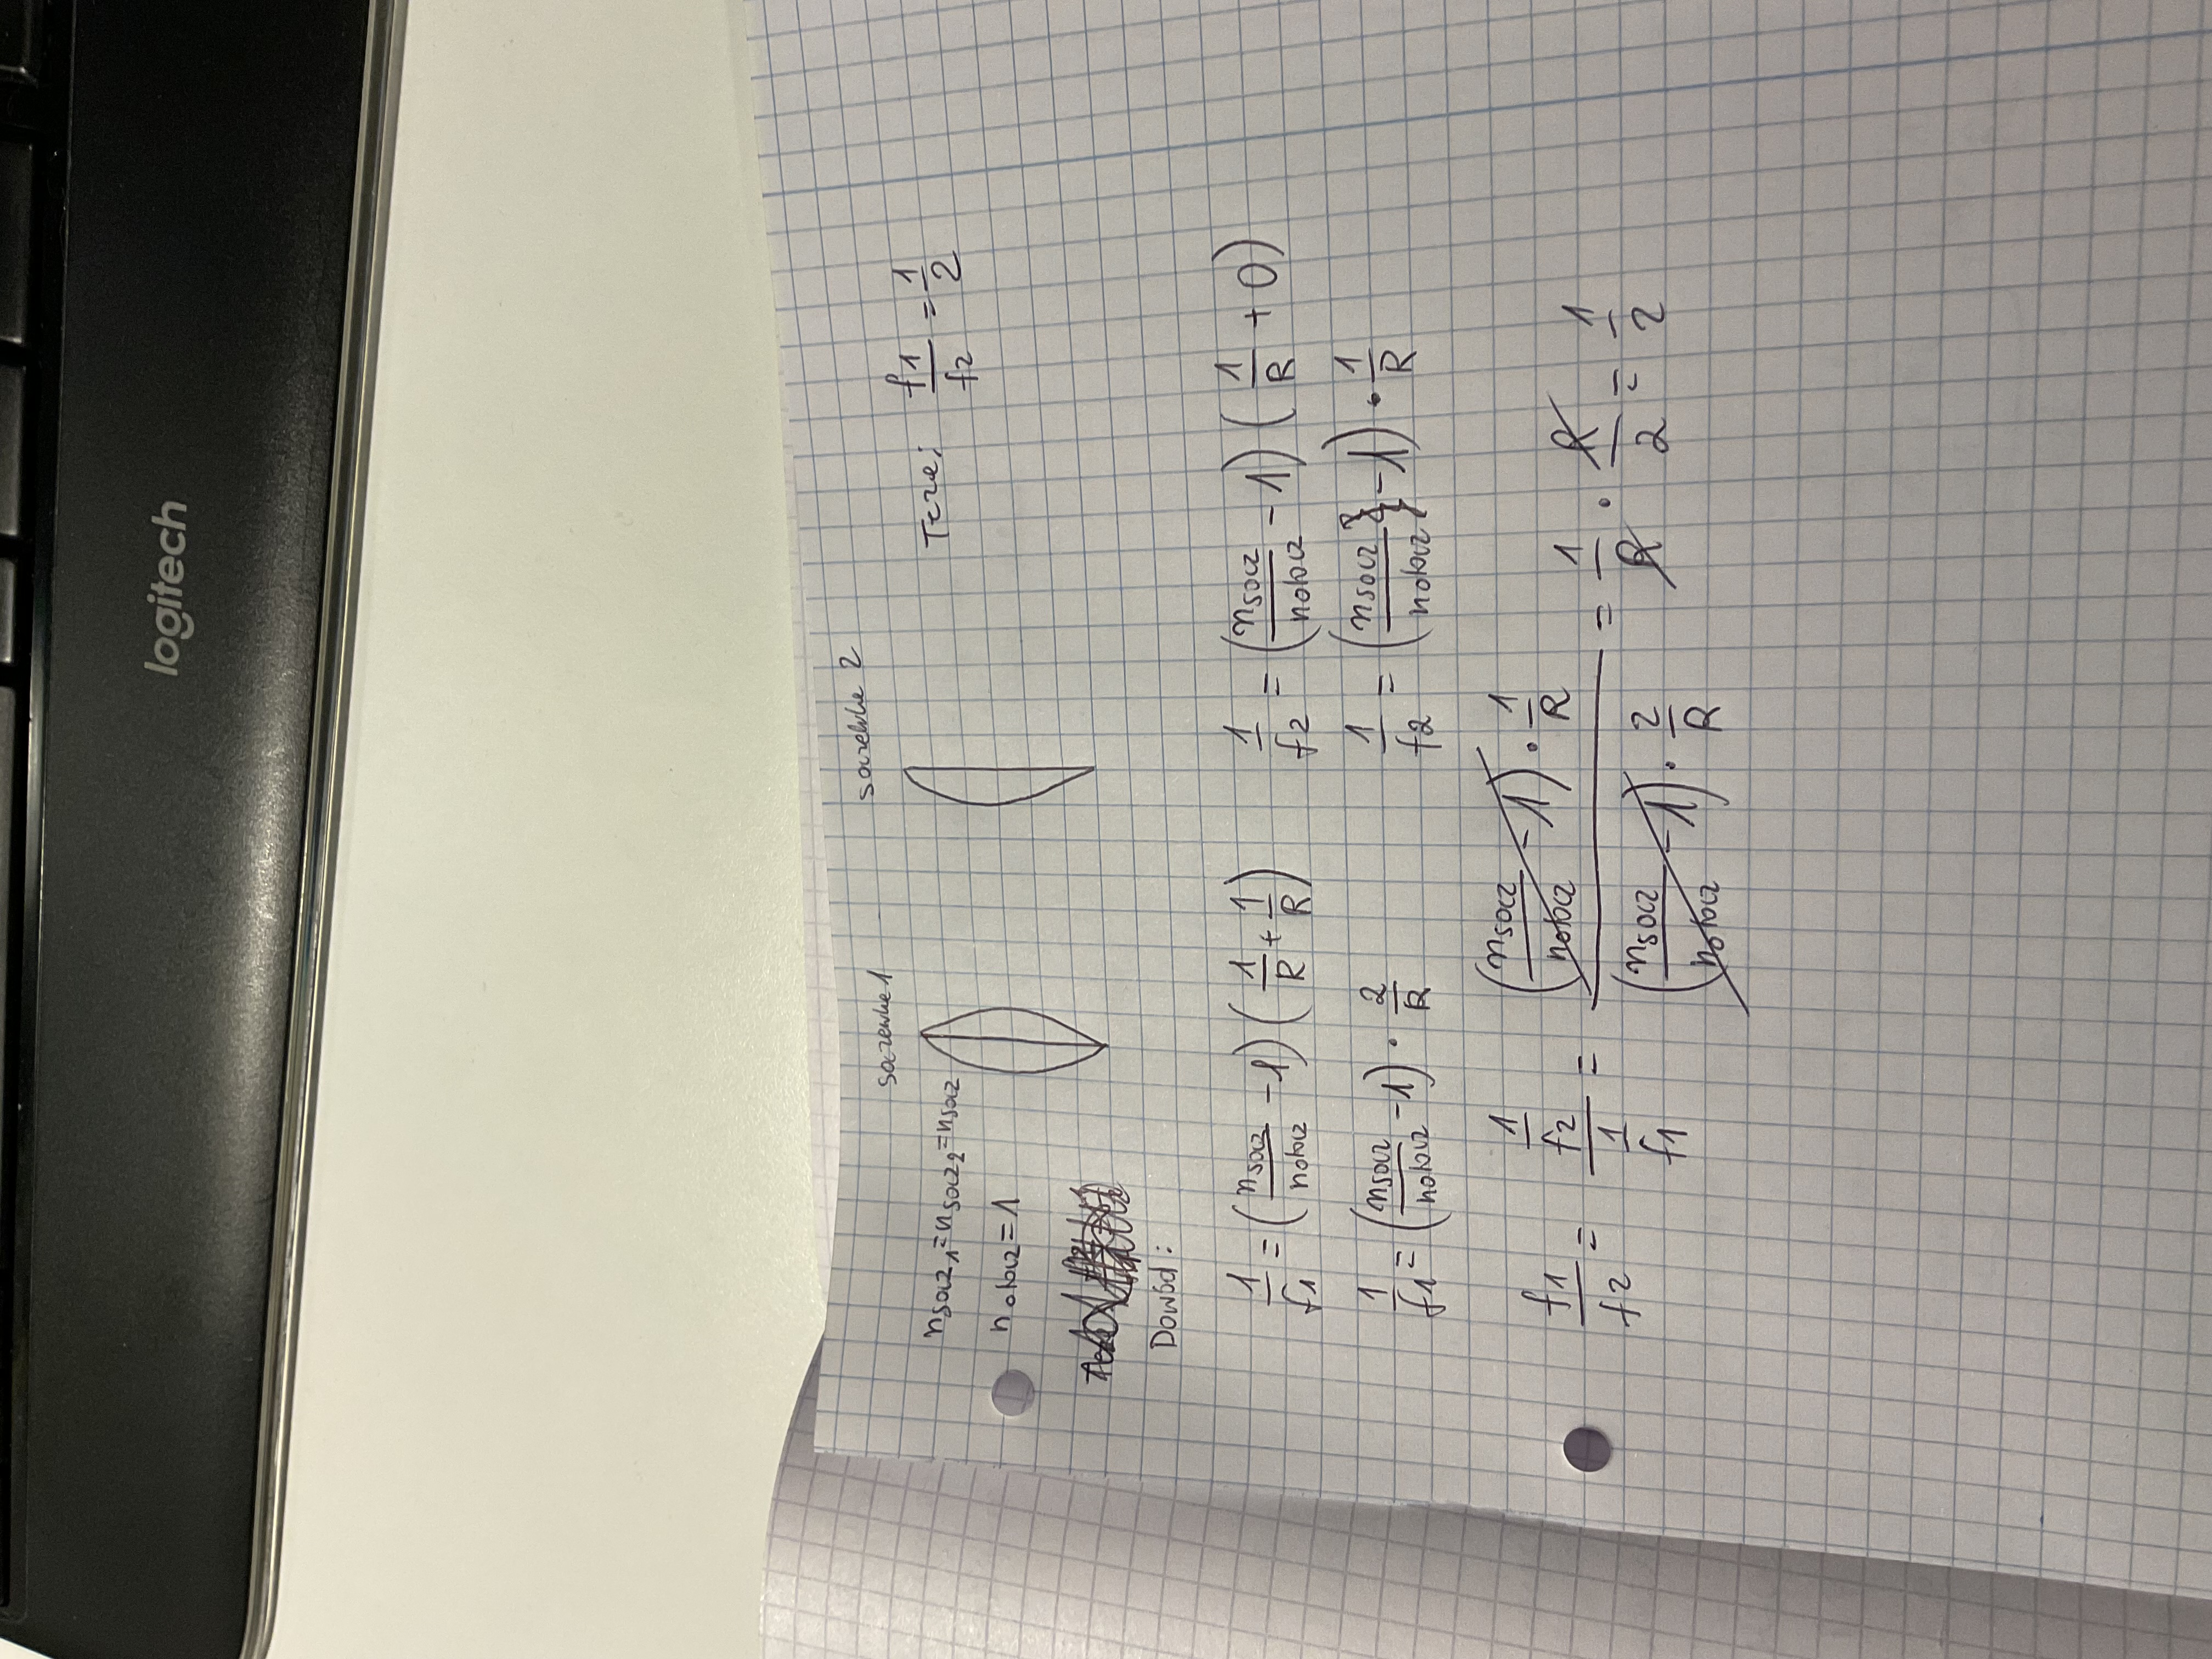 logitech
soczewka 1
soczewka 2
n_socz_1 = n_socz_2 = n_socz
Teza: f1/f2 = 1/2
n_otocz = 1
Dowód:
1/f1 = (n_socz/n_otocz - 1)(1/R + 1/R)
1/f2 = (n_socz/n_otocz - 1)(1/R + 0)
1/f1 = (n_socz/n_otocz - 1) · 2/R
1/f2 = (n_socz/n_otocz - 1) · 1/R
f1/f2 = (1/f2)/(1/f1) = ((n_socz/n_otocz - 1) · 1/R)/((n_socz/n_otocz - 1) · 2/R) = 1/R · R/2 = 1/2